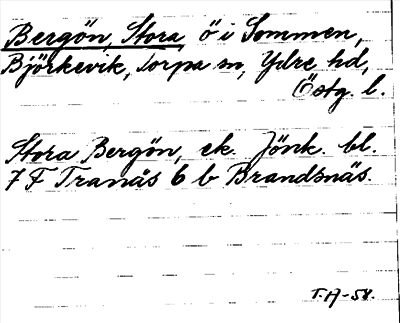 Bergön, Stora ö i Sommen,
Björkevik, Torpa sn, Ydre hd,
Östg. l.
Stora Bergön, ek. Jönk. bl.
7 F Tranås 6 b Brandsnäs.
T.A-58.